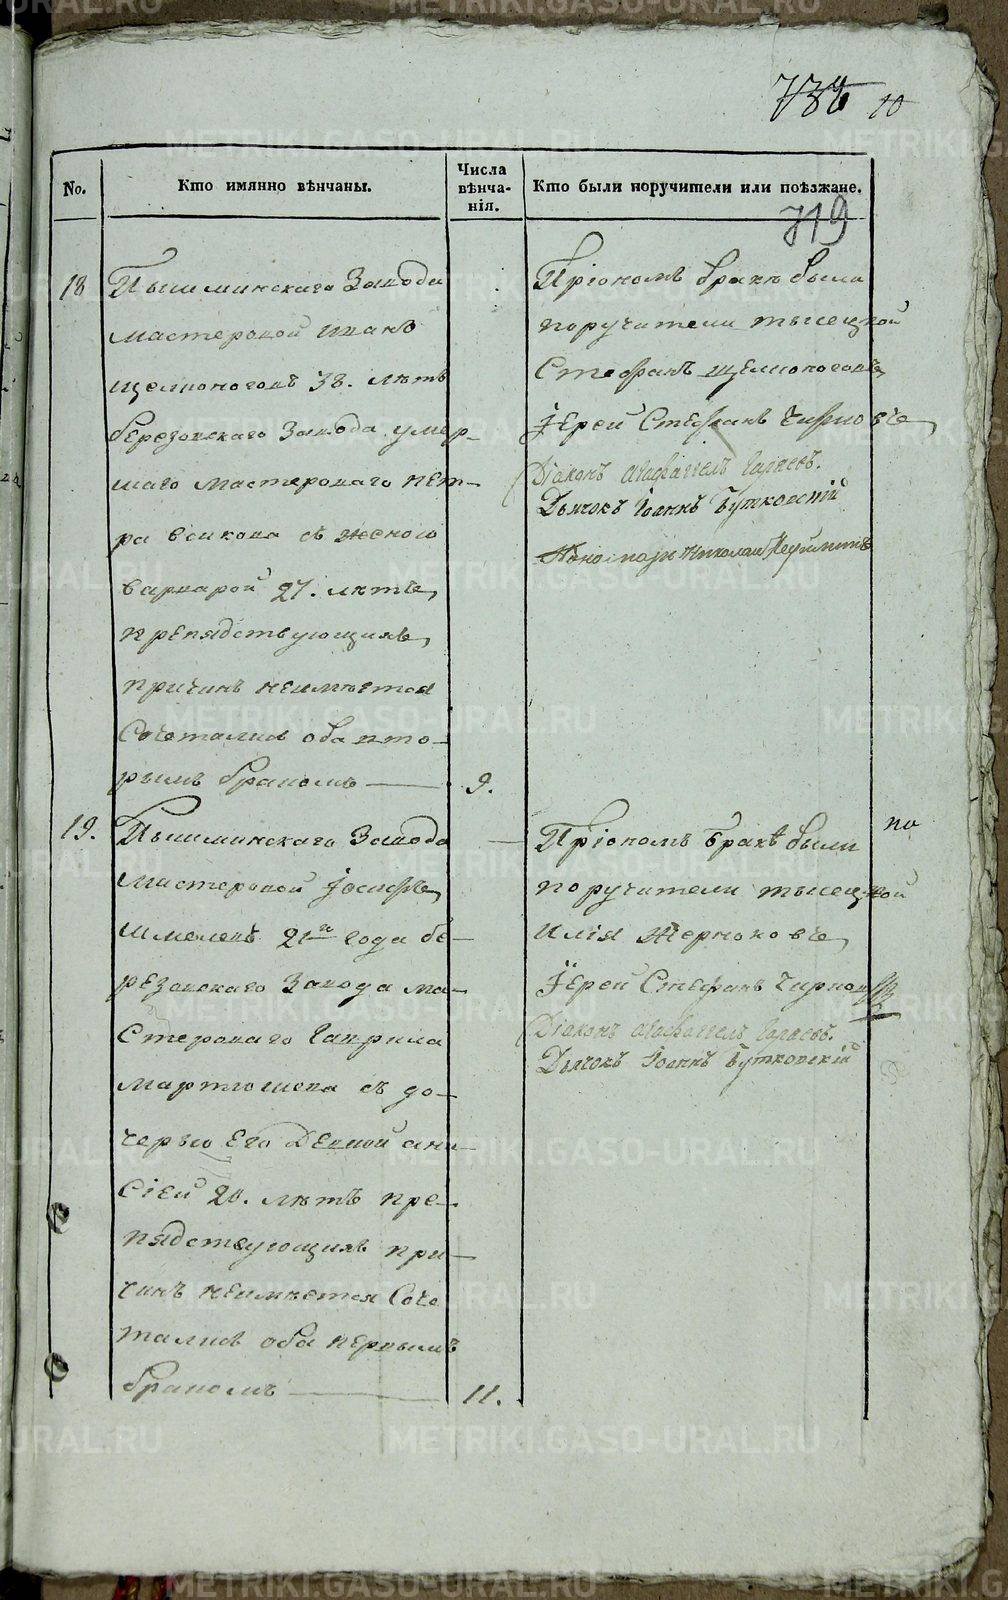 10
No.
Кто имянно вѣнчаны.
Числа
вѣнча-
нія.
Кто были поручители или поѣзжане.
719
18
Пышминскаго Завода
мастеровой Иванъ
щелконоговъ 38. лѣтъ
березовскаго Завода умер-
шаго мастероваго пет-
ра с женою
варварой 27. лѣтъ,
препядствующихъ,
причинъ неимѣется
Сочетались оба вто-
рымъ бракомъ
9.
Пріономъ бракѣ были
поручители тысецкой
Стефанъ щелконоговъ,
Іерей Стефанъ
Діаконъ
Дьячокъ Іоаннъ Бутковскій
Пономарь Николай
19.
Пышминскаго Завода
мастеровой Іосифъ,
Шмелевъ 21го года бе-
резовскаго Завода ма-
стероваго Гаврила
мартюшева съ до-
черью его Девкой ани-
сіей 20. лѣтъ пре-
пядствующихъ при-
чинъ неимѣется Соче
тались оба первымъ
бракомъ
11.
Пріономъ бракѣ были
поручители тысецкой
Илія Жерноковъ,
Іерей Стефанъ
Діаконъ
Дьячокъ Іоаннъ Бутковскій
по
METRIKI.GASO-URAL.RU